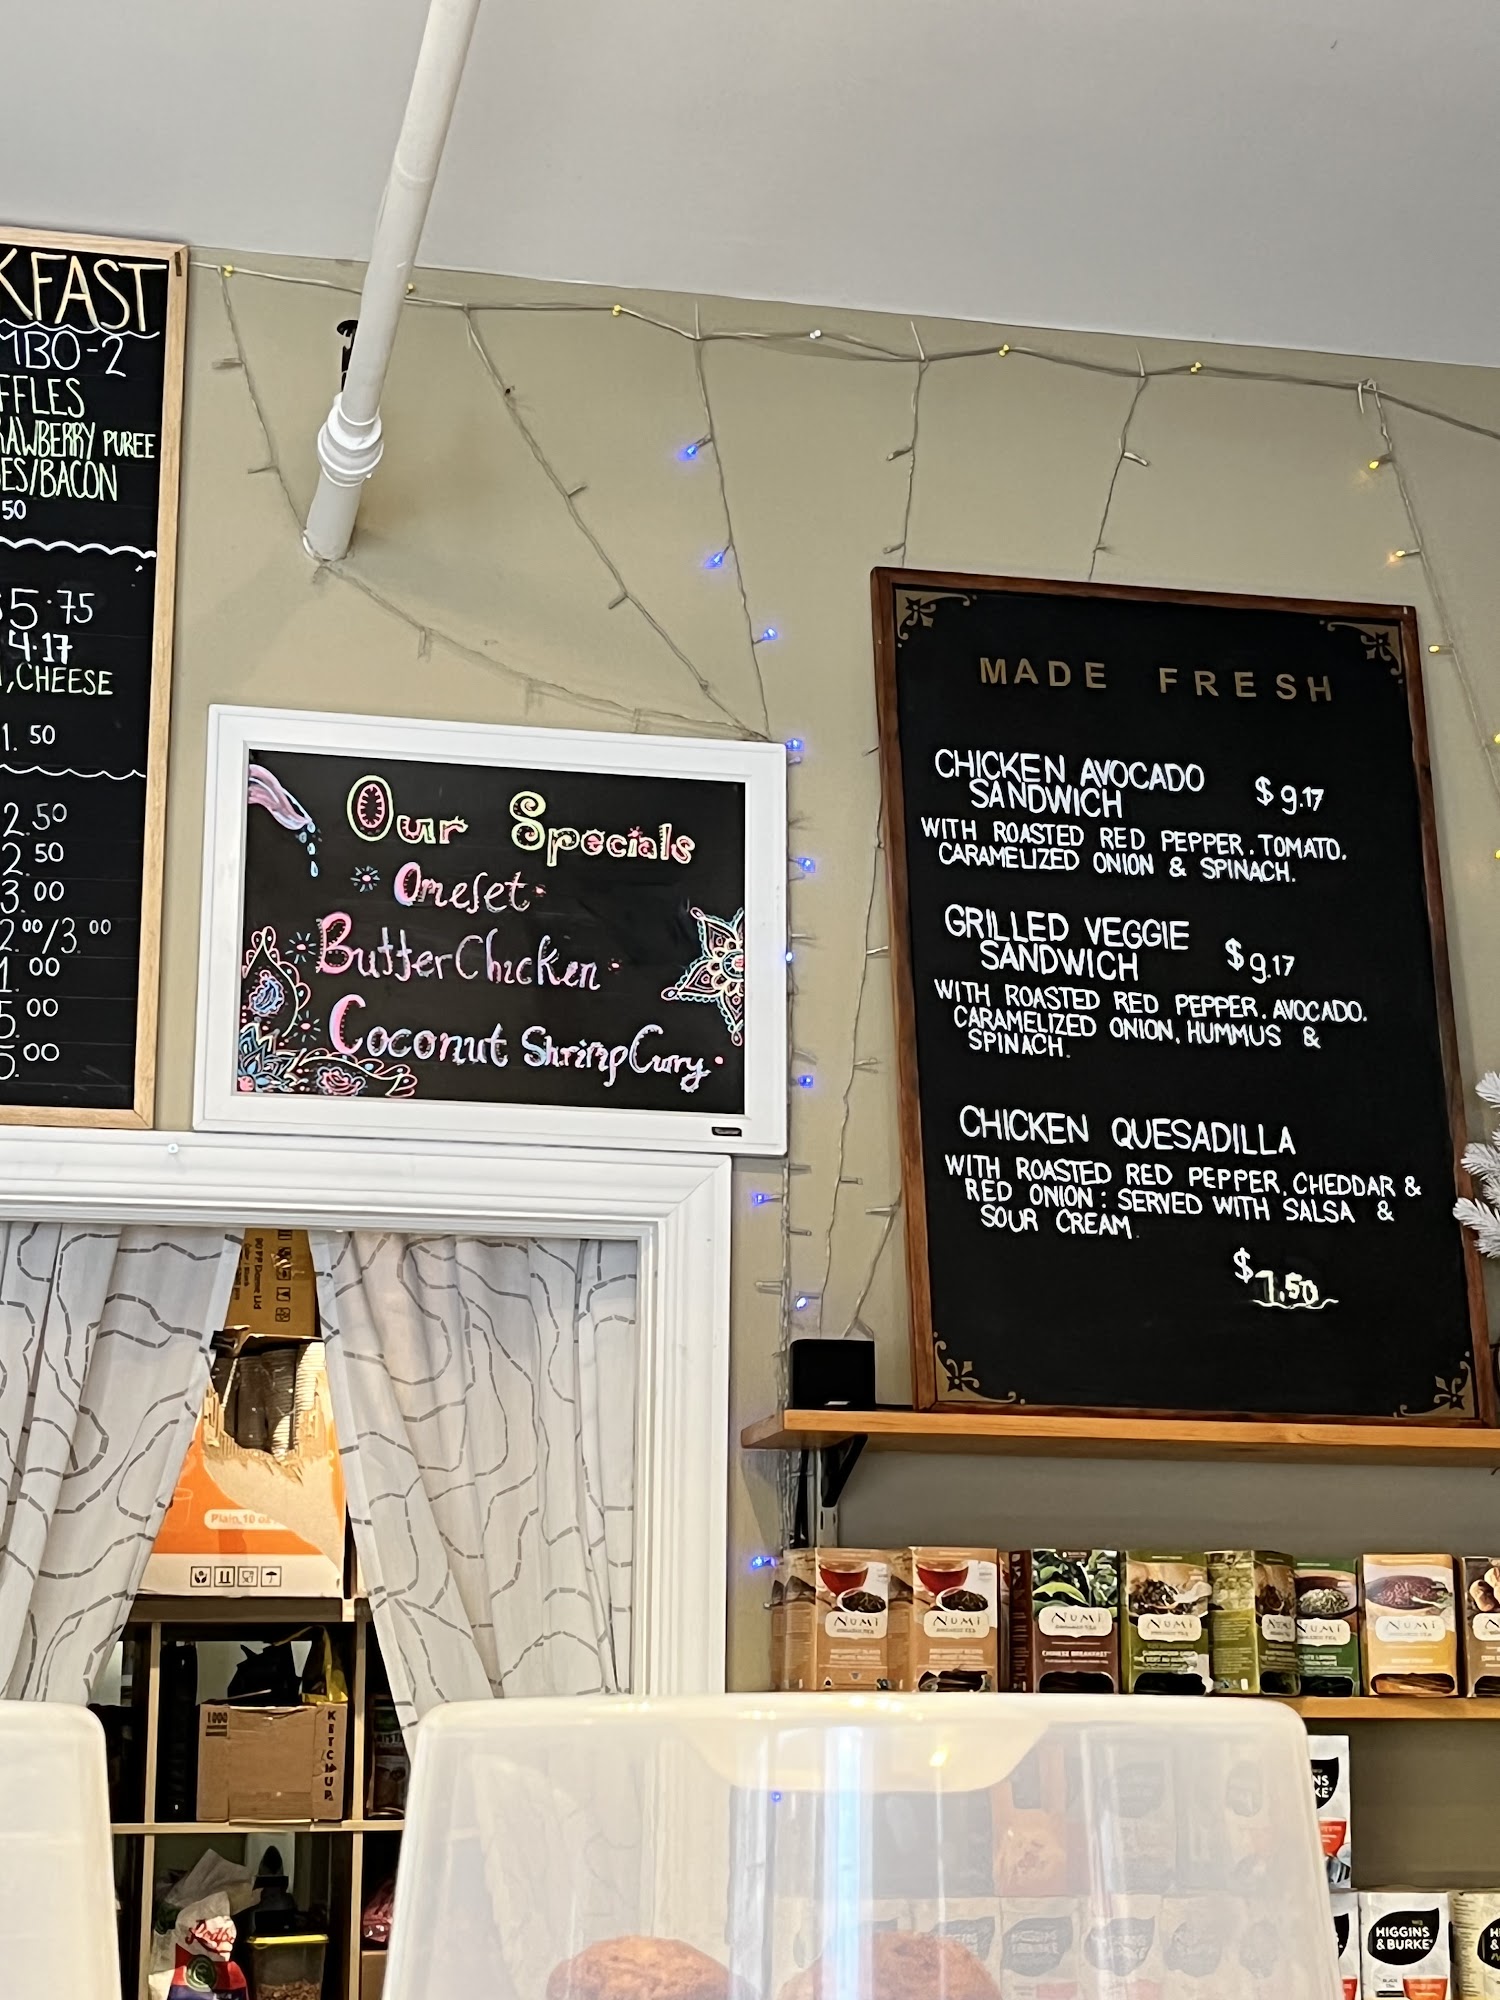 KFAST
MBO-2
FFLES
RAWBERRY PUREE
ES/BACON
50
$5.75
4.17
, CHEESE
1.50
2.50
2.50
3.00
2.00/3.00
1.00
5.00
5.00
Our Specials
Omelet
Butter Chicken
Coconut Shrimp Curry
MADE FRESH
CHICKEN AVOCADO
SANDWICH
$9.17
WITH ROASTED RED PEPPER, TOMATO,
CARAMELIZED ONION & SPINACH.
GRILLED VEGGIE
SANDWICH
$9.17
WITH ROASTED RED PEPPER, AVOCADO,
CARAMELIZED ONION, HUMMUS &
SPINACH.
CHICKEN QUESADILLA
WITH ROASTED RED PEPPER, CHEDDAR &
RED ONION: SERVED WITH SALSA &
SOUR CREAM.
$7.50
Plain 10 oz
1000
KETCHUP
NUMI
ORGANIC TEA
NUMI
ORGANIC TEA
NUMI
CHINESE BREAKFAST
NUMI
NUMI
NUMI
NUMI
HIGGINS
& BURKE